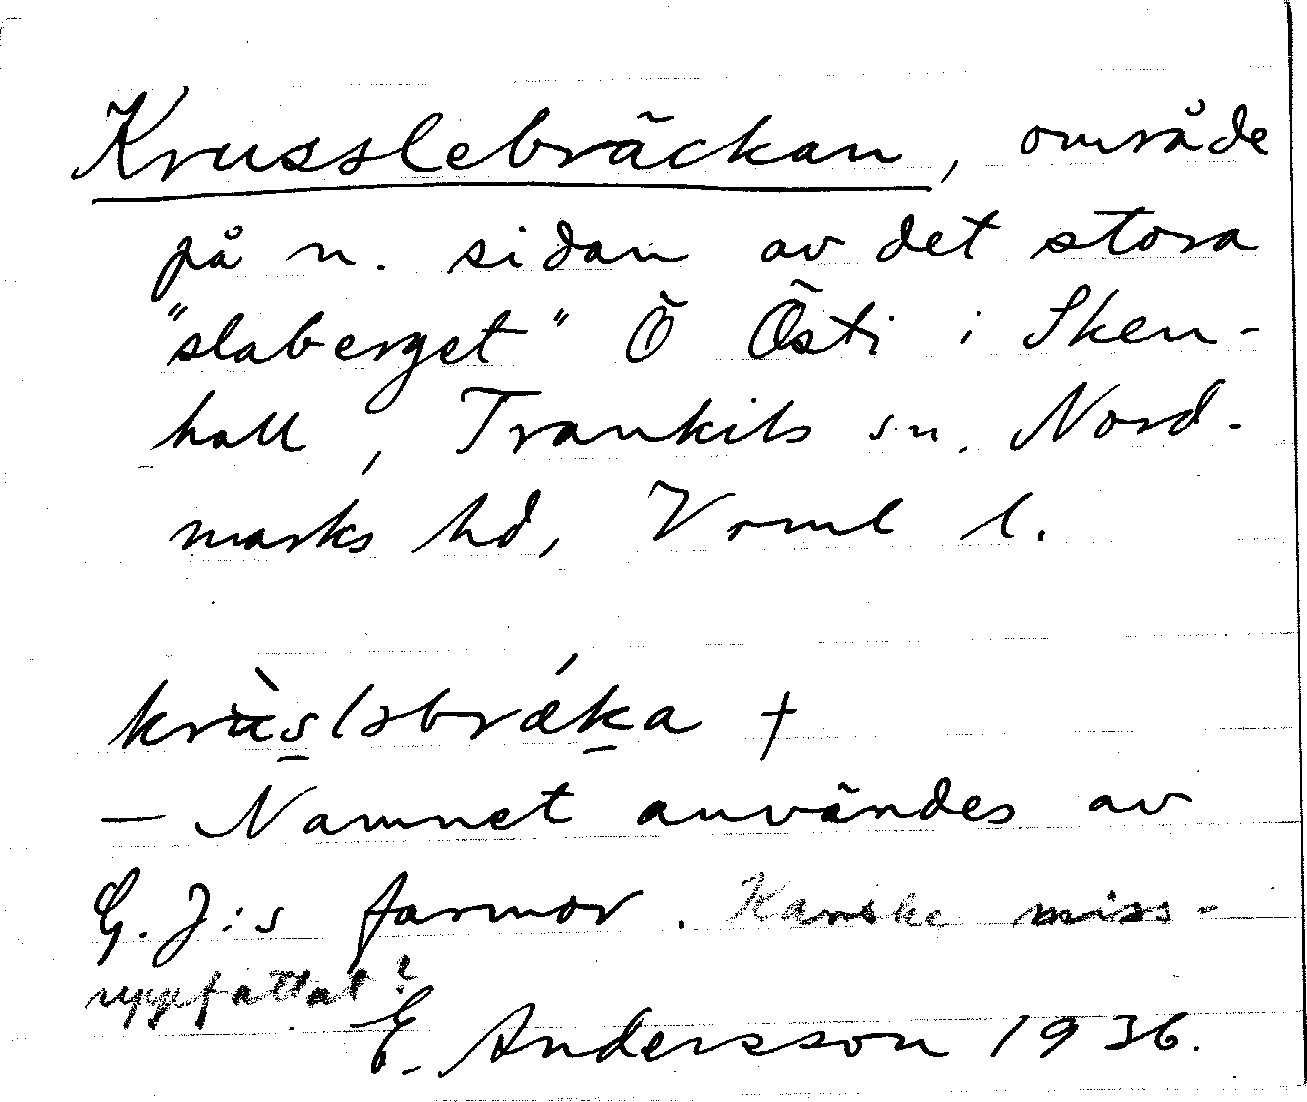 Krusslebräckan, område
på n. sidan av det stora
"slaberget" Ö Östi i Sken-
hall, Trankils sn. Nord-
marks hd, Vrml l.
krùs̠ləbrǽk̠a †
— Namnet användes av
G. J:s farmor. Kanske miss-
uppfattat?
E. Andersson 1936.